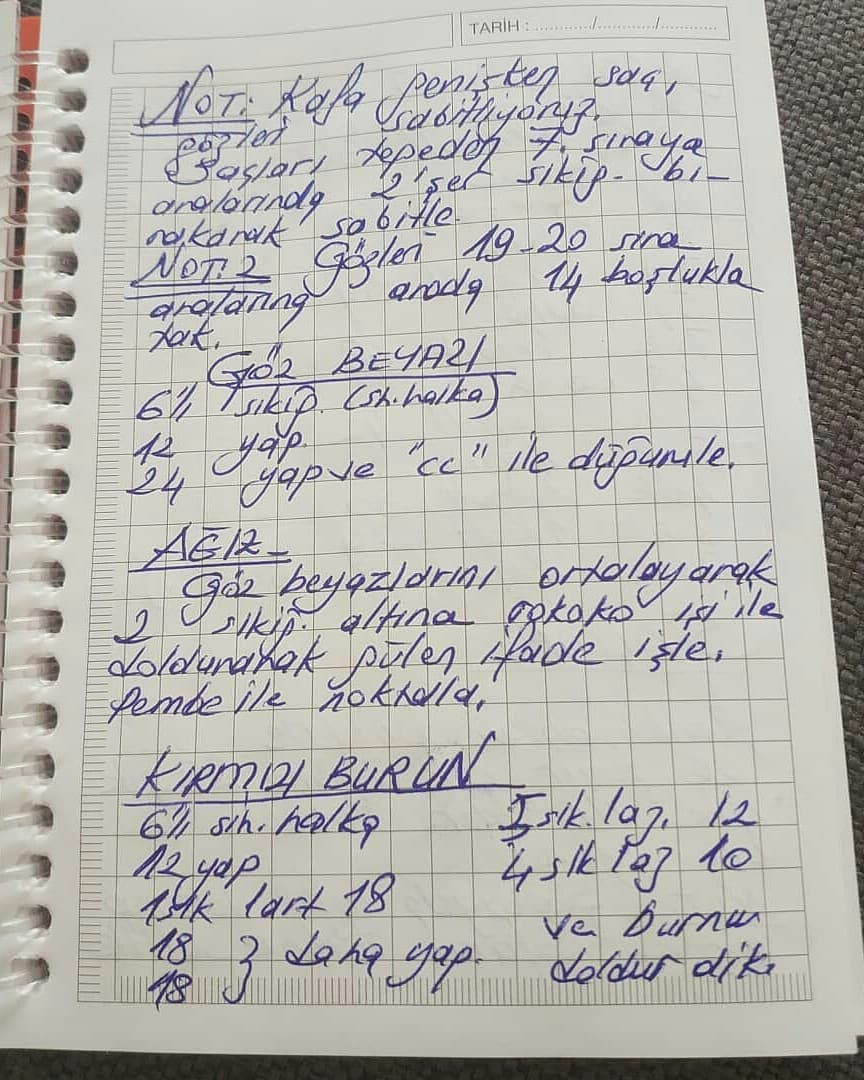 TARİH : ............/............/............
NOT: Kafa genişken saç,
gözleri sabitliyoruz.
Kaşları tepeden 7. sıraya
aralarında 2'şer sıkip- bı-
rakarak sabitle.
NOT: 2 Gözleri 19-20 sıra
aralarına arada 14 boşlukla
tak.
GÖZ BEYAZI
6'lı sıkip. (sh.halka)
12 yap
24 yap ve "cc" ile düğümle.
AĞIZ
Göz beyazlarını ortalayarak
2 sıkip. altına rokoko işi ile
doldurarak gülen ifade işle.
Pembe ile noktala.
KIRMIZI BURUN
6'lı sih. halka
12 yap
1sık 1art 18
18 } daha yap.
18
5 sık. 1az. 12
4 sık 1az 10
ve burnu
doldur dik.